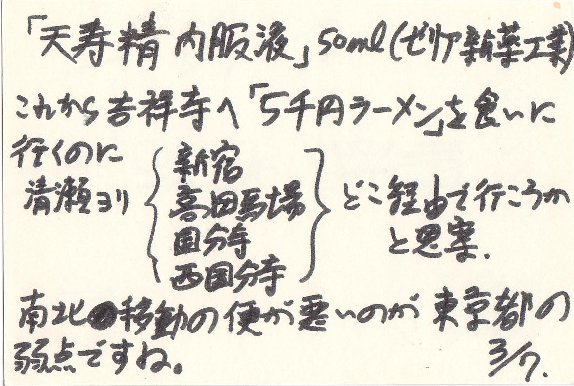 「天寿精内服液」50ml(ゼリア新薬工業)
これから吉祥寺へ「5千円ラーメン」を食いに
行くのに
清瀬ヨリ
新宿
高田馬場
国分寺
西国分寺
どこ経由で行こうか
と思案.
南北移動の便が悪いのが東京都の
弱点ですね。
3/7.